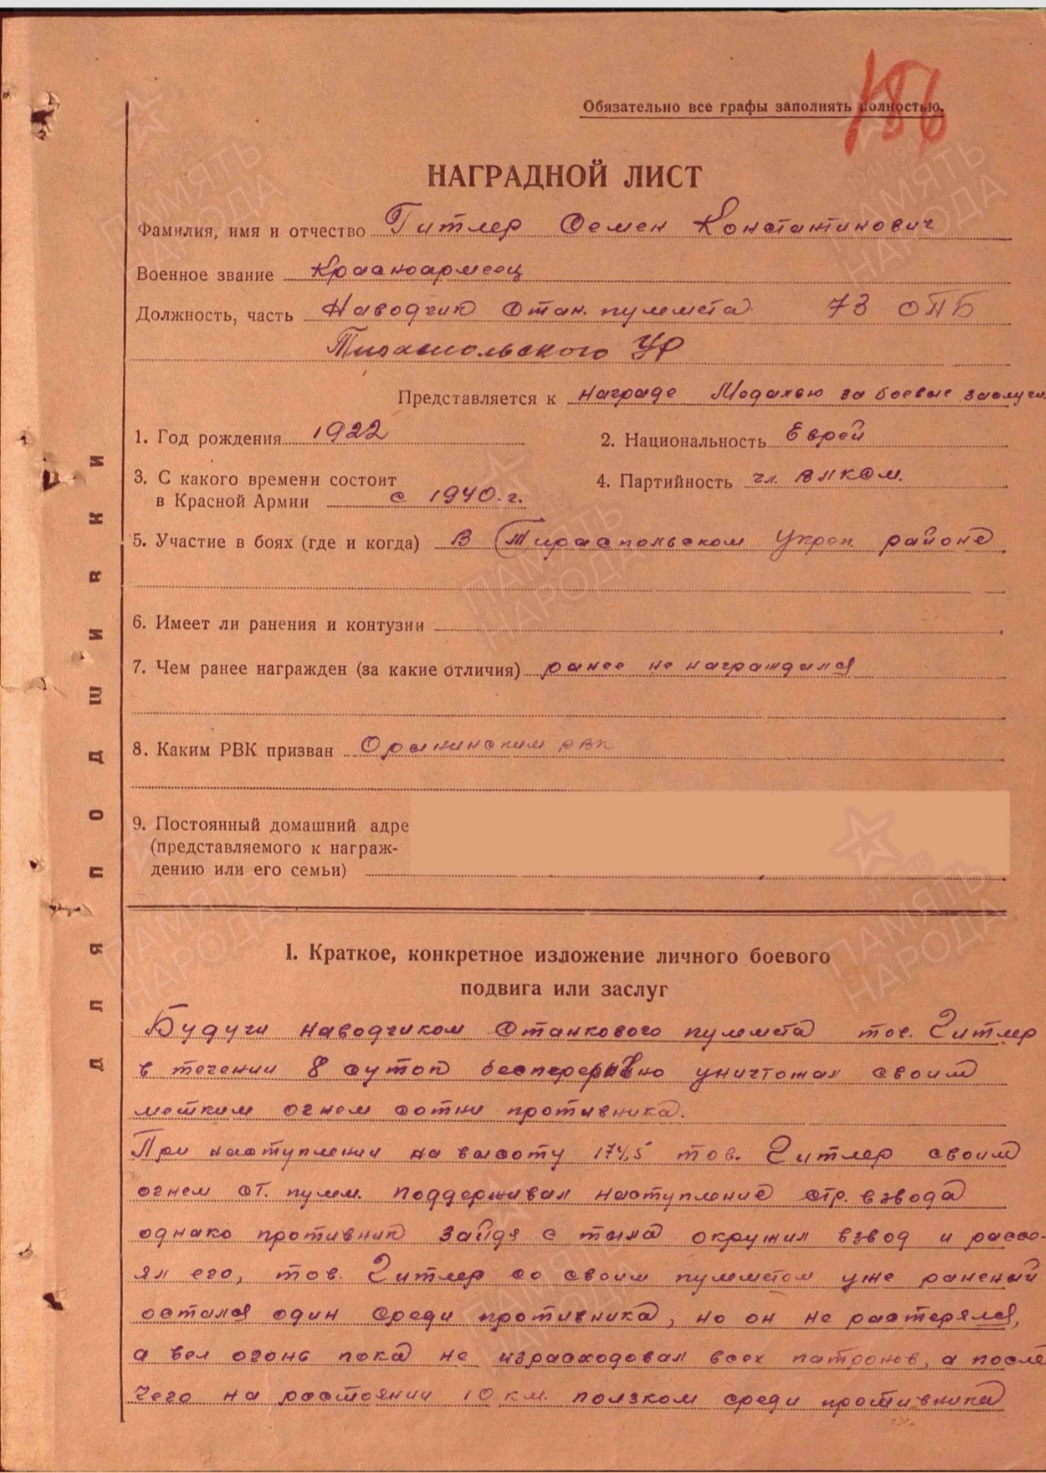 186
Обязательно все графы заполнять полностью.
НАГРАДНОЙ ЛИСТ
Фамилия, имя и отчество Гитлер Семен Константинович
Военное звание Красноармеец
Должность, часть Наводчик Стан. пулемета 73 ОПБ
Тираспольского УР
Представляется к награде Медалью за боевые заслуги
1. Год рождения 1922
2. Национальность Еврей
3. С какого времени состоит
в Красной Армии с 1940 г.
4. Партийность чл. ВЛКСМ.
5. Участие в боях (где и когда) В Тираспольском Укреп районе
6. Имеет ли ранения и контузии
7. Чем ранее награжден (за какие отличия) ранее не награждался
8. Каким РВК призван Орынинским РВК
9. Постоянный домашний адре
(представляемого к награж-
дению или его семьи)
ДЛЯ ПОДШИВКИ
I. Краткое, конкретное изложение личного боевого
подвига или заслуг
Будучи наводчиком станкового пулемета тов. Гитлер
в течении 8 суток бесперерывно уничтожал своим
метким огнем сотни противника.
При наступлении на высоту 174,5 тов. Гитлер своим
огнем ст. пулм. поддерживал наступление стр. взвода
однако противник зайдя с тыла окружил взвод и рассе-
ял его, тов. Гитлер со своим пулеметом уже раненый
остался один среди противника, но он не растерялся,
а вел огонь пока не израсходовал всех патронов, а после
чего на расстоянии 10 км. ползком среди противника
ПАМЯТЬ
НАРОДА